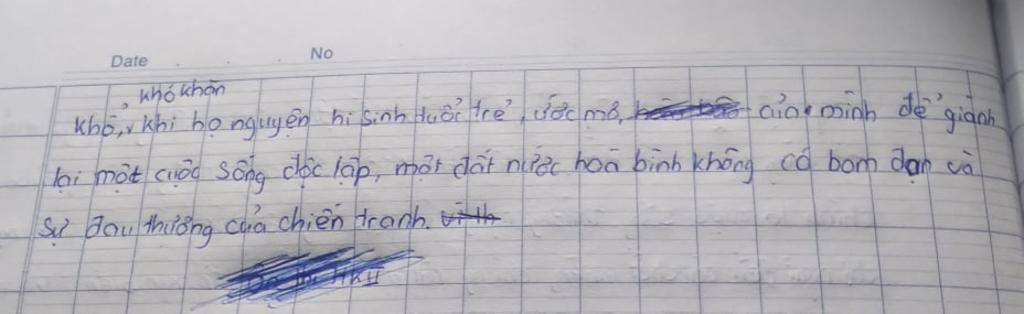 Date No
khó khăn
khổ, khi họ nguyện hi sinh tuổi trẻ, ước mơ, của mình để giành
lại một cuộc sống độc lập, một đất nước hoà bình không có bom đạn và
sự đau thương của chiến tranh.